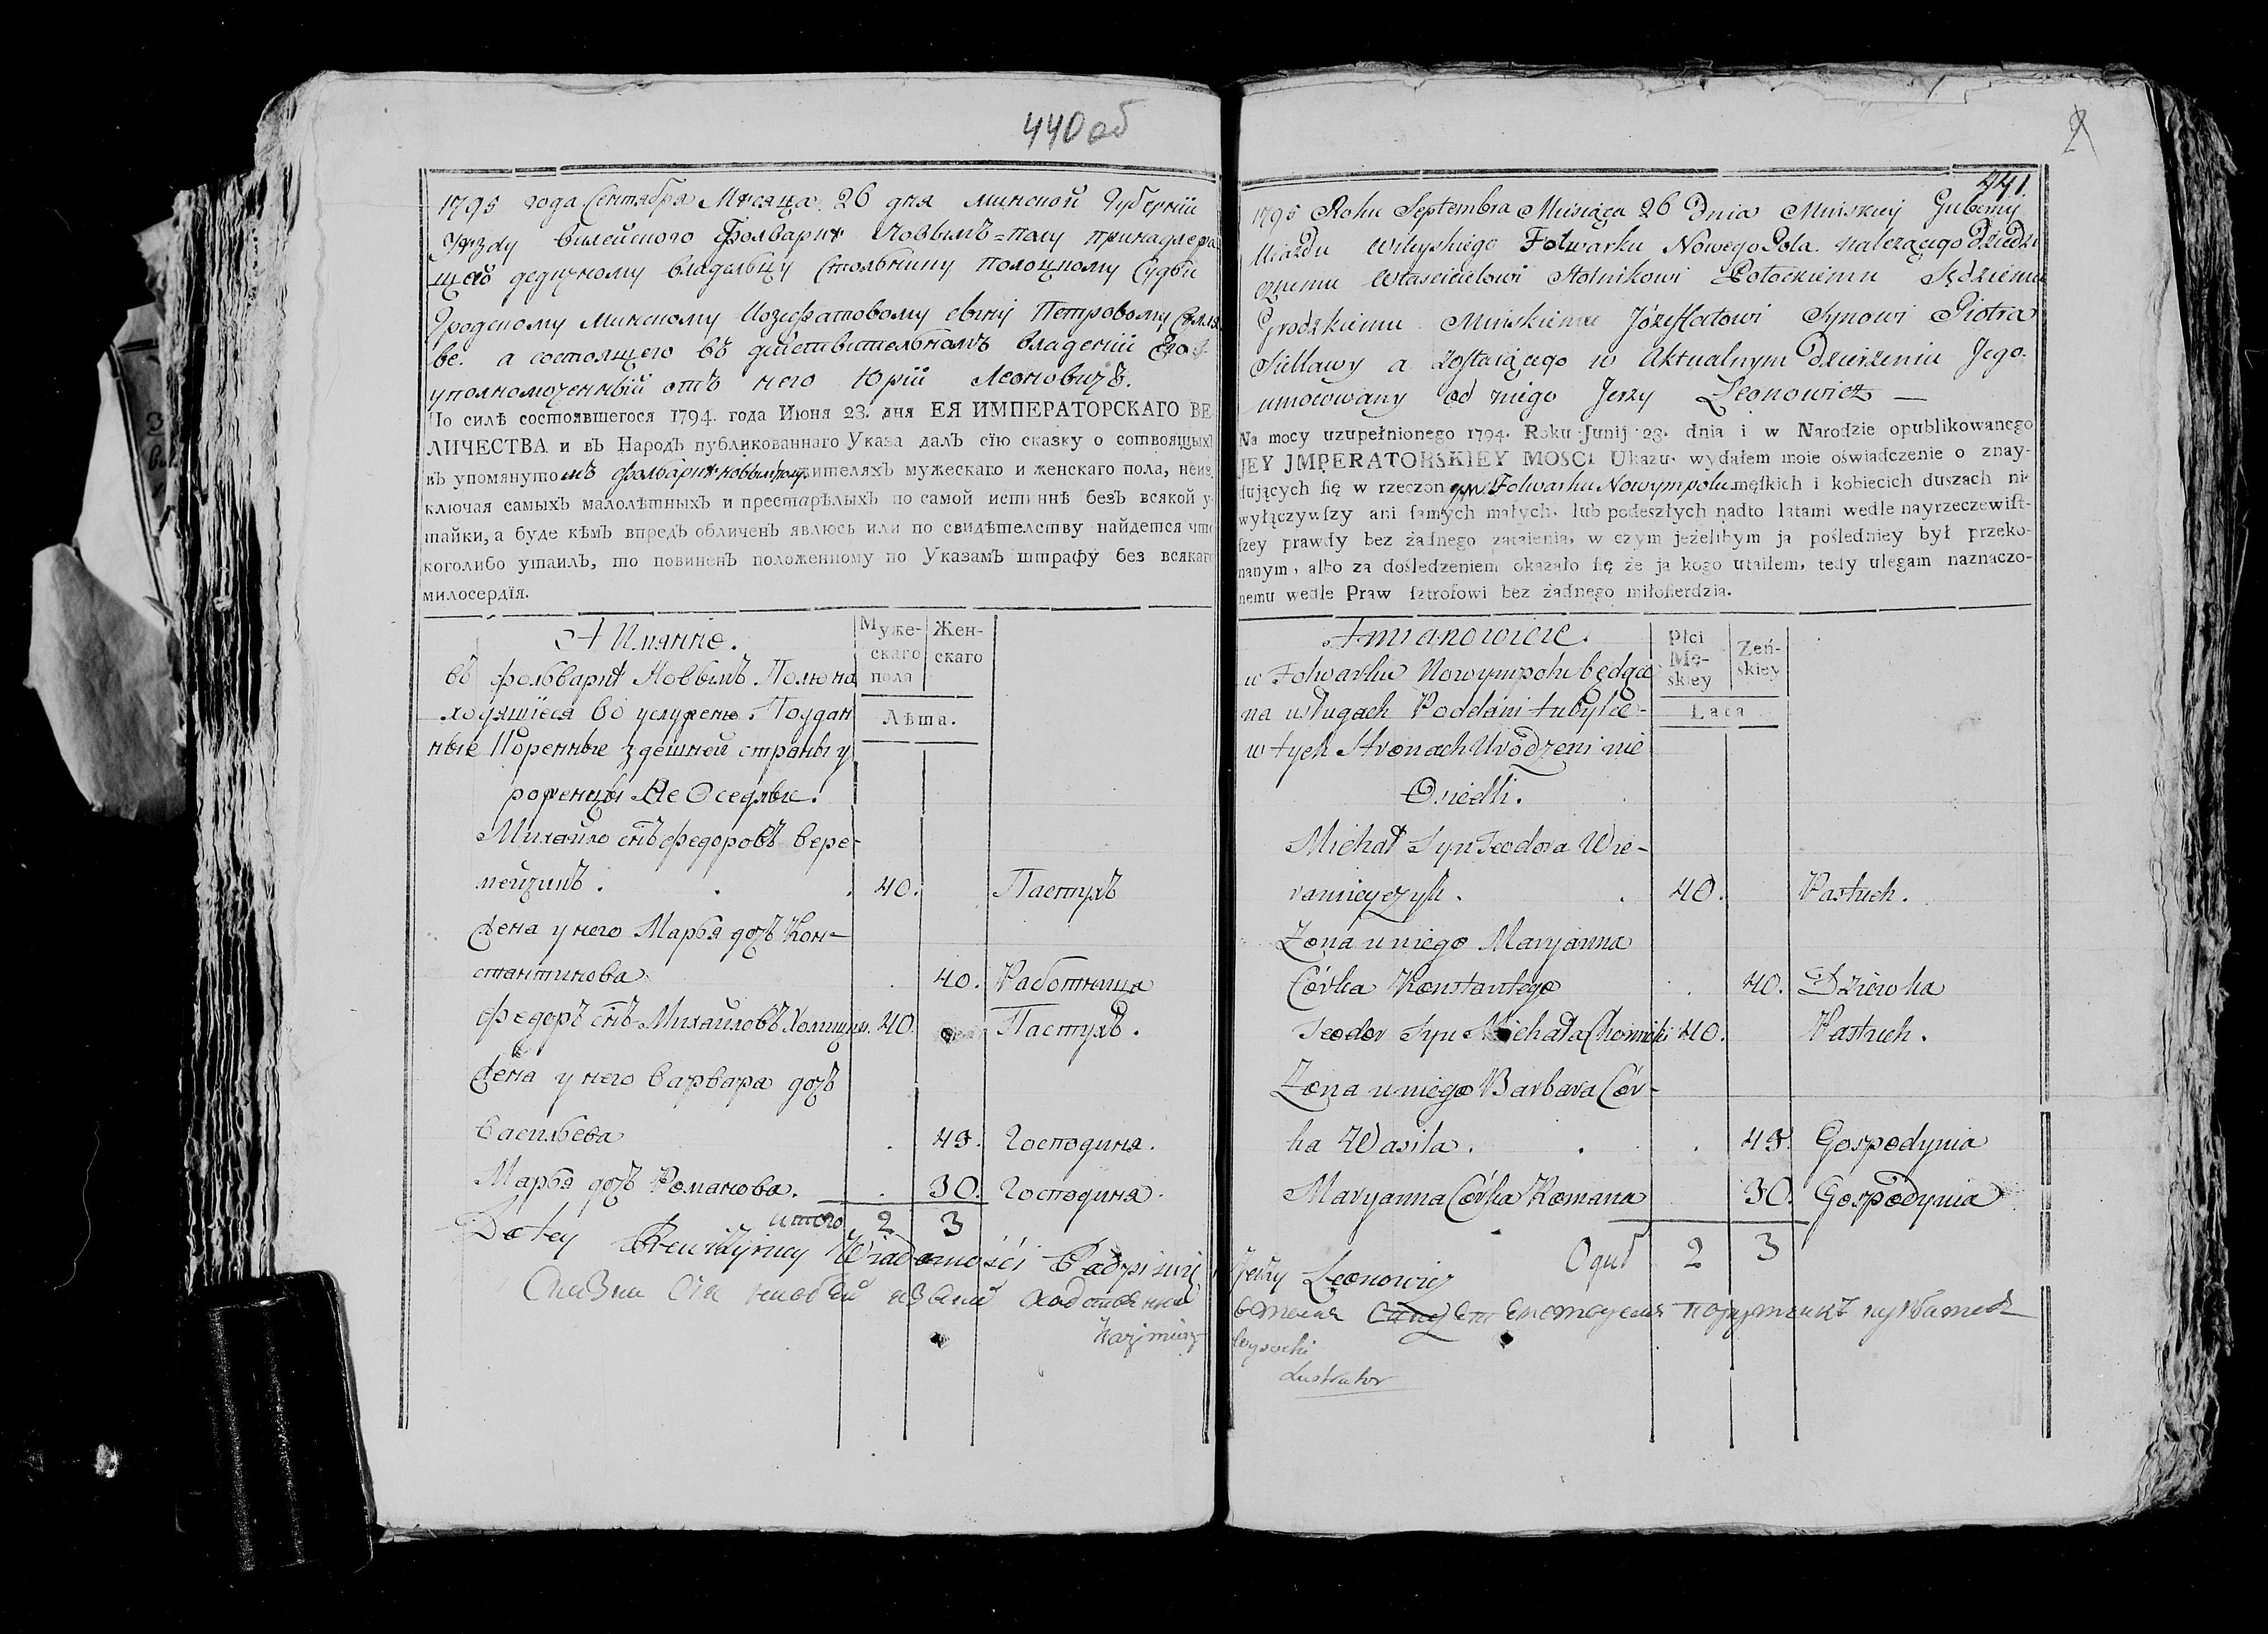 440 об
1795 года Сентября Месяца 26 дня минской Губерніи
Уезду вилейского Фолварку Новымъ=полу принадлежа
щего дедичному владельцу Стольнику полоцкому Судьи
Гродскому минскому Иозефатовому сыну Петровому Селя
ве. а состоящего въ действительномъ владеніи Его
уполномоченный отъ него Юрій Леоновичъ.
По силѣ состоявшегося 1794. года Июня 23. дня ЕЯ ИМПЕРАТОРСКАГО ВЕ
ЛИЧЕСТВА и въ Народъ публикованнаго Указа далъ сїю сказку о сотвоящыхъ
въ упомянутомъ фолварке новымполу жителяхъ мужескаго и женскаго пола, неиз
ключая самыхъ малолѣтныхъ и престарѣлыхъ по самой истиннѣ безъ всякой у
тайки, а буде кѣмъ впредъ обличенъ явлюсь или по свидѣтелству найдется что
коголибо утаилъ, то повиненъ положенному по Указамъ штрафу без всякаго
милосердїя.
А Имянно.
Муже-
скаго
пола
Жен-
скаго
въ фольварке Новымъ Полю на
ходящіеся во услужению Поддан
Лѣта.
ные Коренные здешней страны у
роженцы Не Оседлые.
Михайло снъ Федоровъ Вере-
мейчикъ . . . 40. Пастухъ
Жена у него Марья дочъ Кон-
стантинова . 40. Работница
Федоръ снъ Михайловъ Хомицки. 40. Пастухъ.
Жена у него Варвара дочъ
Васильева . 49. Господиня.
Марья дочъ Романова. . 30. Господиня.
итого 2 3
Do tey Rewizyiney Wiadomości Podpisuję
Kazimierz
2
441.
1795 Roku Septembra Miesiąca 26 Dnia Minskiey Gubernij
Uiazdu Wileyskiego Folwarku Nowego Pola należącego Dziedzi
cznemu Właścicielowi Stolnikowi Połockiemu Sędziemu
Grodzkiemu Minskiemu Józeffatowi Synowi Piotra
Sielawy a zostaiącego w Aktualnym Dzierżeniu Jego
umocowany od niego Jerzy Leonowicz —
Na mocy uzupełnionego 1794. Roku Junij 23. dnia i w Narodzie opublikowanego
JEY JMPERATORSKIEY MOSCI Ukazu. wydałem moie oświadczenie o znay-
duiących się w rzeczonym Folwarku Nowympolu męskich i kobiecich duszach ni-
wyłączywszy ani samych małych, lub podeszłych nadto latami wedle nayrzeczewist-
szey prawdy bez żadnego zataienia, w czym jeżelibym ja posledniey był przeko-
nanym, albo za dośledzeniem okazało się że ja kogo utaiłem, tedy ulegam naznaczo-
nemu wedle Praw sztrofowi bez żadnego miłosierdzia.
A mianowicie.
Płci
Mę-
skiey
Zeń-
skiey
w Folwarku Nowympolu będące
na usługach Poddani tubylce
Lata
w tych Stronach Urodzeni nie
Osiedli.
Michał Syn Teodora Wie-
ramieyczyk . . 40. Pastuch.
Żona u niego Maryanna
Córka Konstantego . 40. Dziewka
Teodor Syn Michała Chomicki 40. Pastuch.
Żona u niego Barbara Cór-
ka Wasila . . . 49. Gospodynia
Maryanna Córka Romana 30. Gospodynia
Oguł 2 3
Jerzy Leonowicz
Wysocki
Lustrator